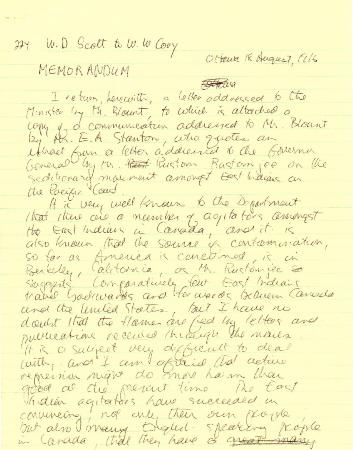 224 W. D Scott to W. W Cory
Ottawa 18 August, 1916
MEMORANDUM
I return, herewith, a letter addressed to the
Minister by Mr. Blount, to which is attached a
copy of a communication addressed to Mr. Blount
by Mr. E.A. Stanton, who quotes an
extract from a letter addressed to the Governor
General by Mr. Rustom Rustomjee on the
seditionary movement amongst East Indians on
the Pacific Coast.
It is very well known to the Department
that there are a number of agitators amongst
the East Indians in Canada, and it is
also known that the source of contamination,
so far as America is concerned, is in
Berkeley, California, as Mr. Rustomjee
suggests. Comparatively few East Indians
travel backwards and forwards between Canada
and the United States, but I have no
doubt that the flames are fed by letters and
publications received through the mails.
It is a subject very difficult to deal
with, and I am afraid that active
repression might do more harm than
good at the present time. The East
Indian agitators have succeeded in
convincing, not only their own people,
but also many English speaking people
in Canada, that they have a great many